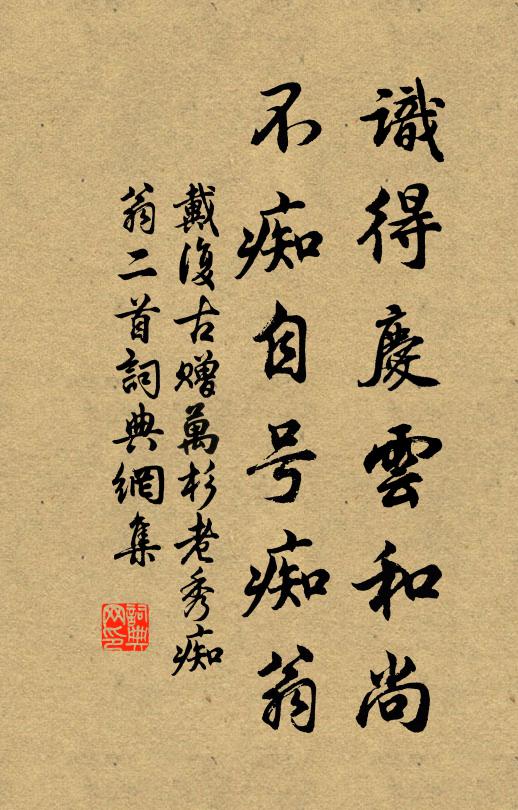 識得慶雲和尚
不痴自号痴翁
戴復古贈萬杉老秀痴
翁二首詞典網集
詞典
网印